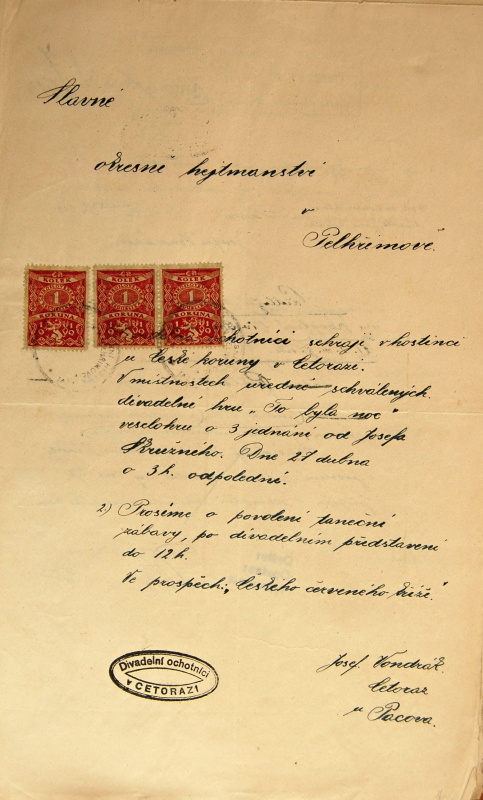 Slavné
okresné hejtmanství
v
Pelhřimově.
ČS ČS ČS
KOLEK KOLEK KOLEK
1 1 1
KORUNA KORUNA KORUNA
ochotníci sehrají v hostinci
u České koruny v Cetorazi.
V místnostech uředně schválených
divadelné hru „To byla noc"
veselohru o 3 jednání od Josefa
Skružného. Dne 27 dubna
o 3h. odpolední.
2) Prosíme o povolení taneční
zábavy, po divadelním představení
do 12h.
Ve prospěch: „Českého červeného kříže."
Josef Vondrák.
Cetoraz
u Pacova.
Divadelní ochotníci
v CETORAZI